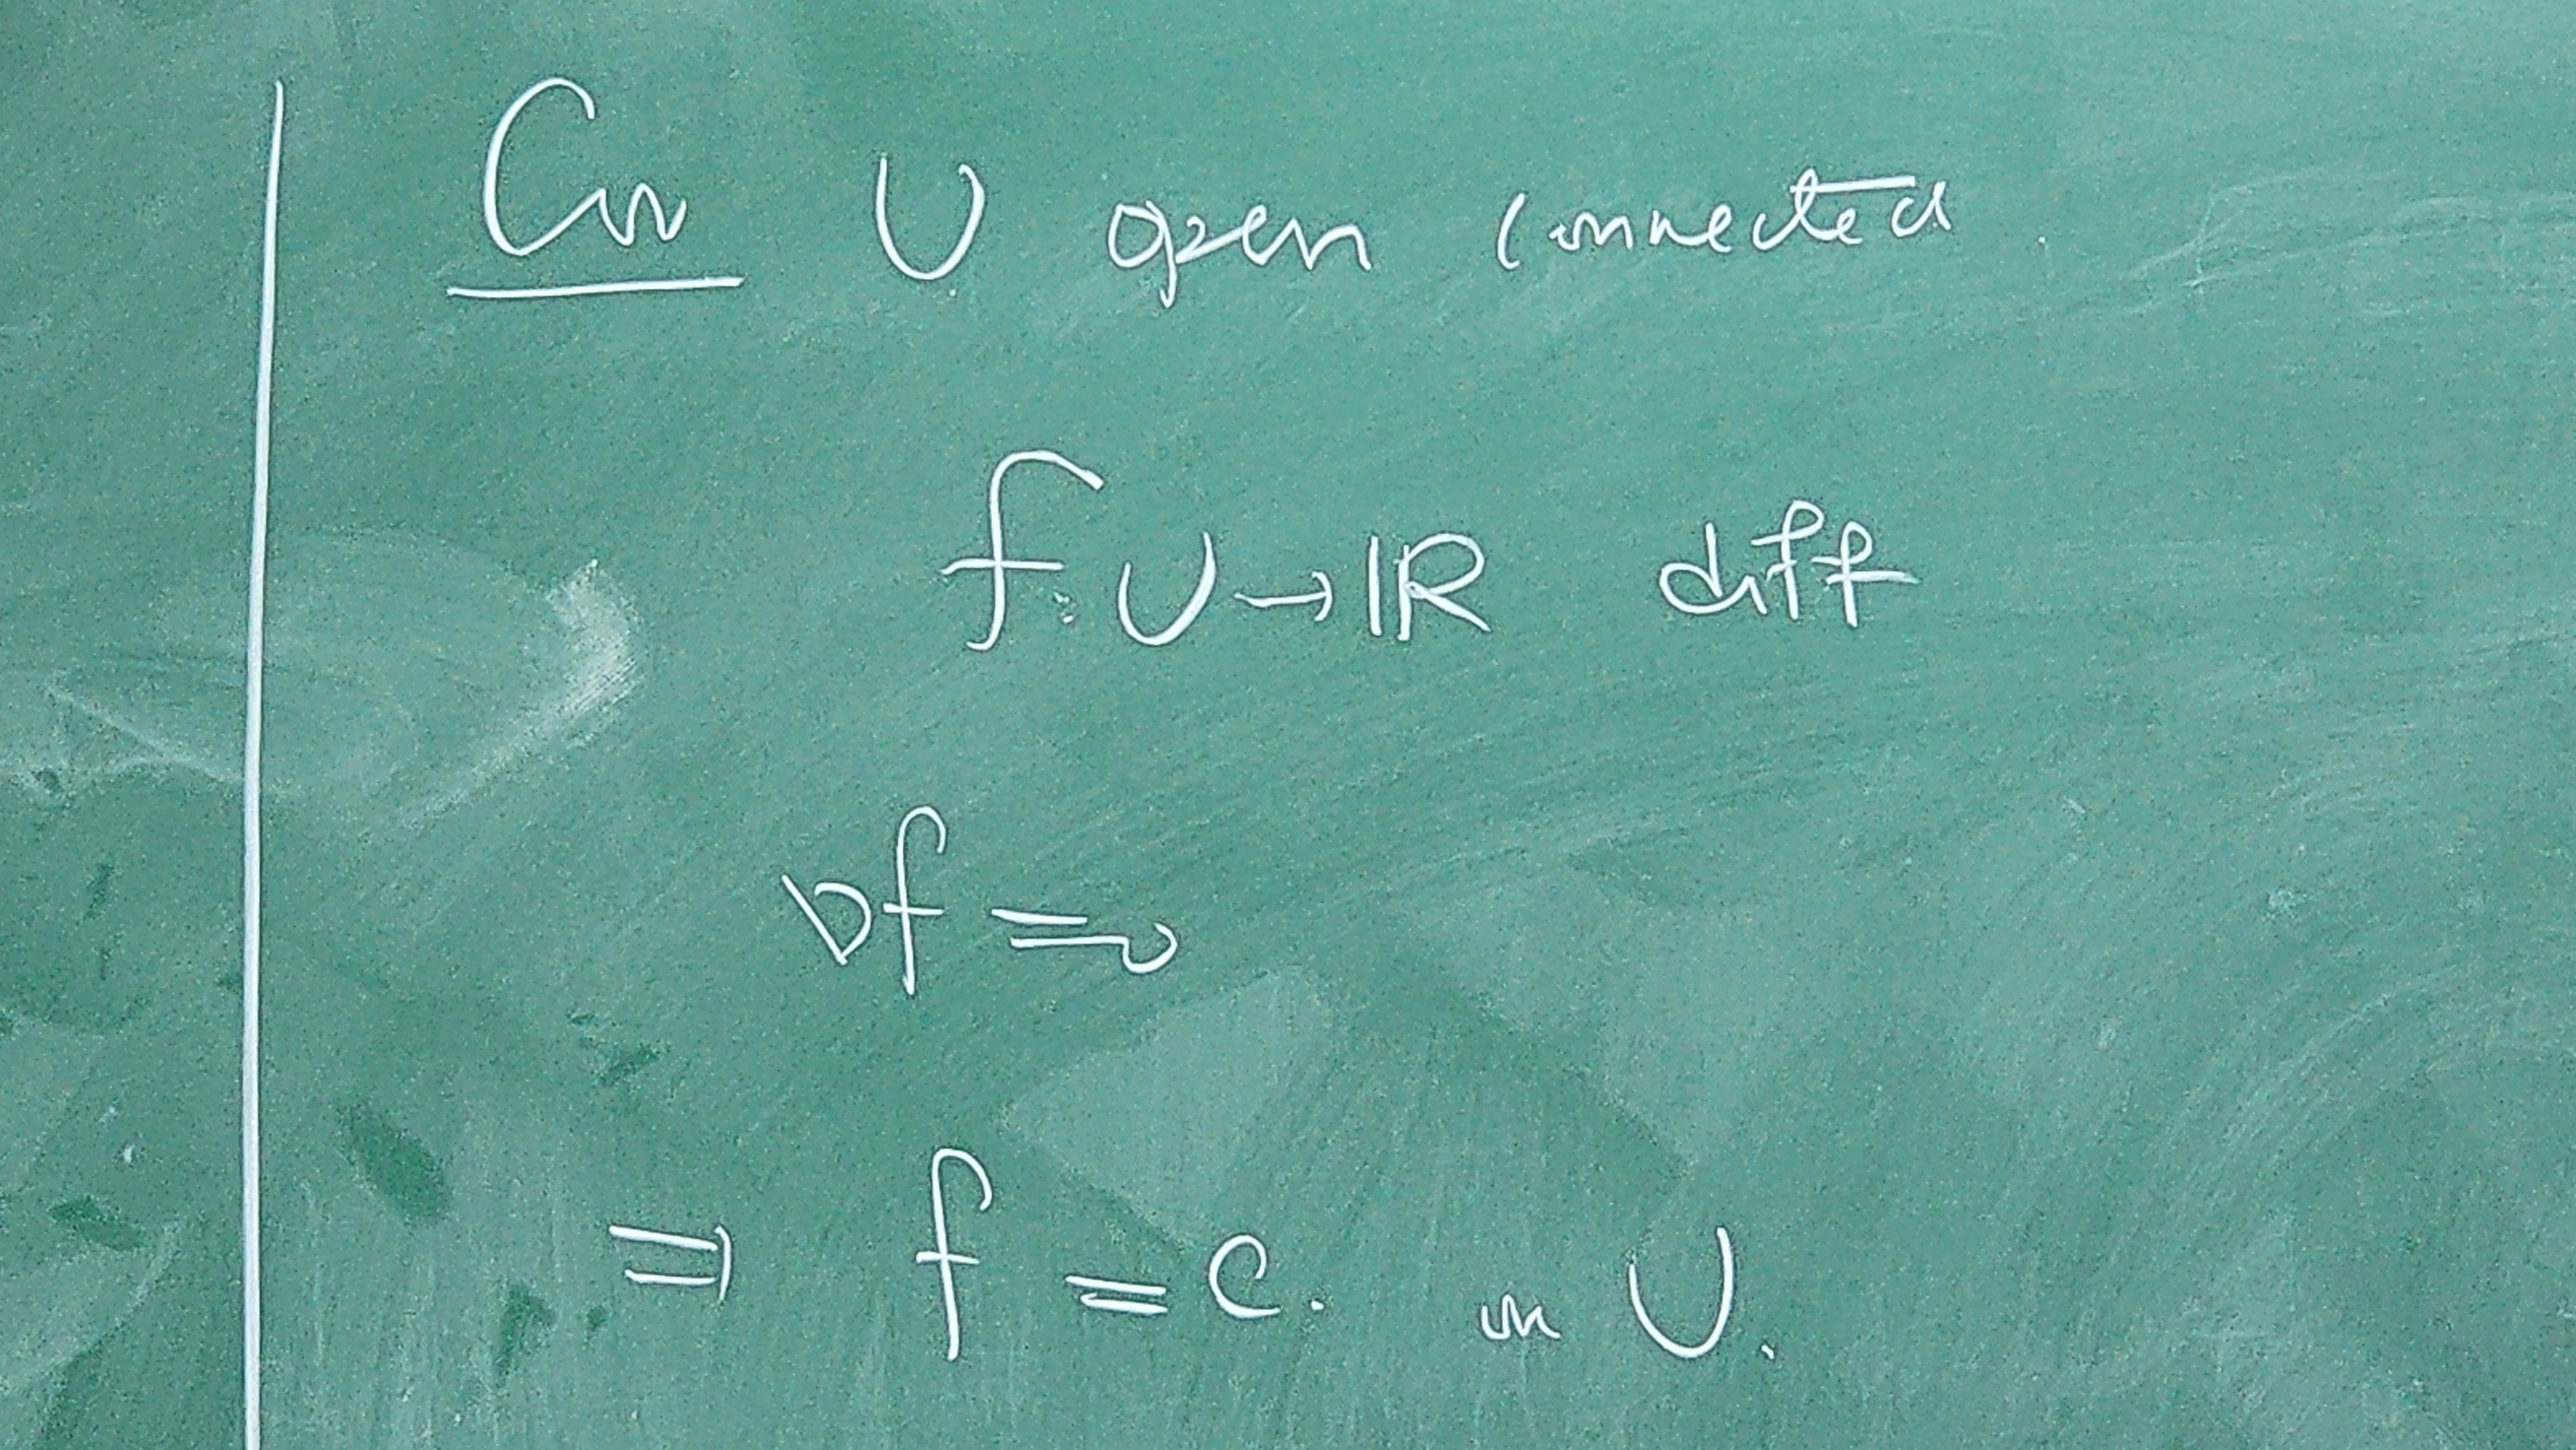 Cor U open connected.
f: U → ℝ diff
Df = 0
⇒ f = c. in U.